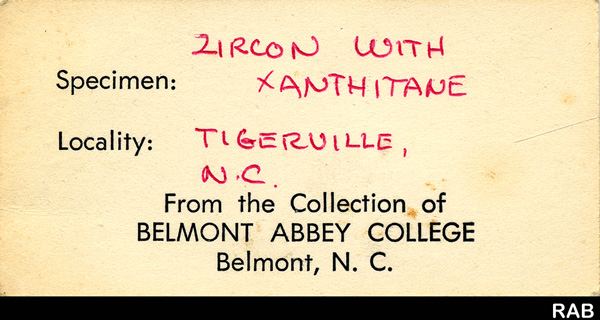 ZIRCON WITH
Specimen: XANTHITANE
Locality: TIGERVILLE,
N.C.
From the Collection of
BELMONT ABBEY COLLEGE
Belmont, N. C.
RAB